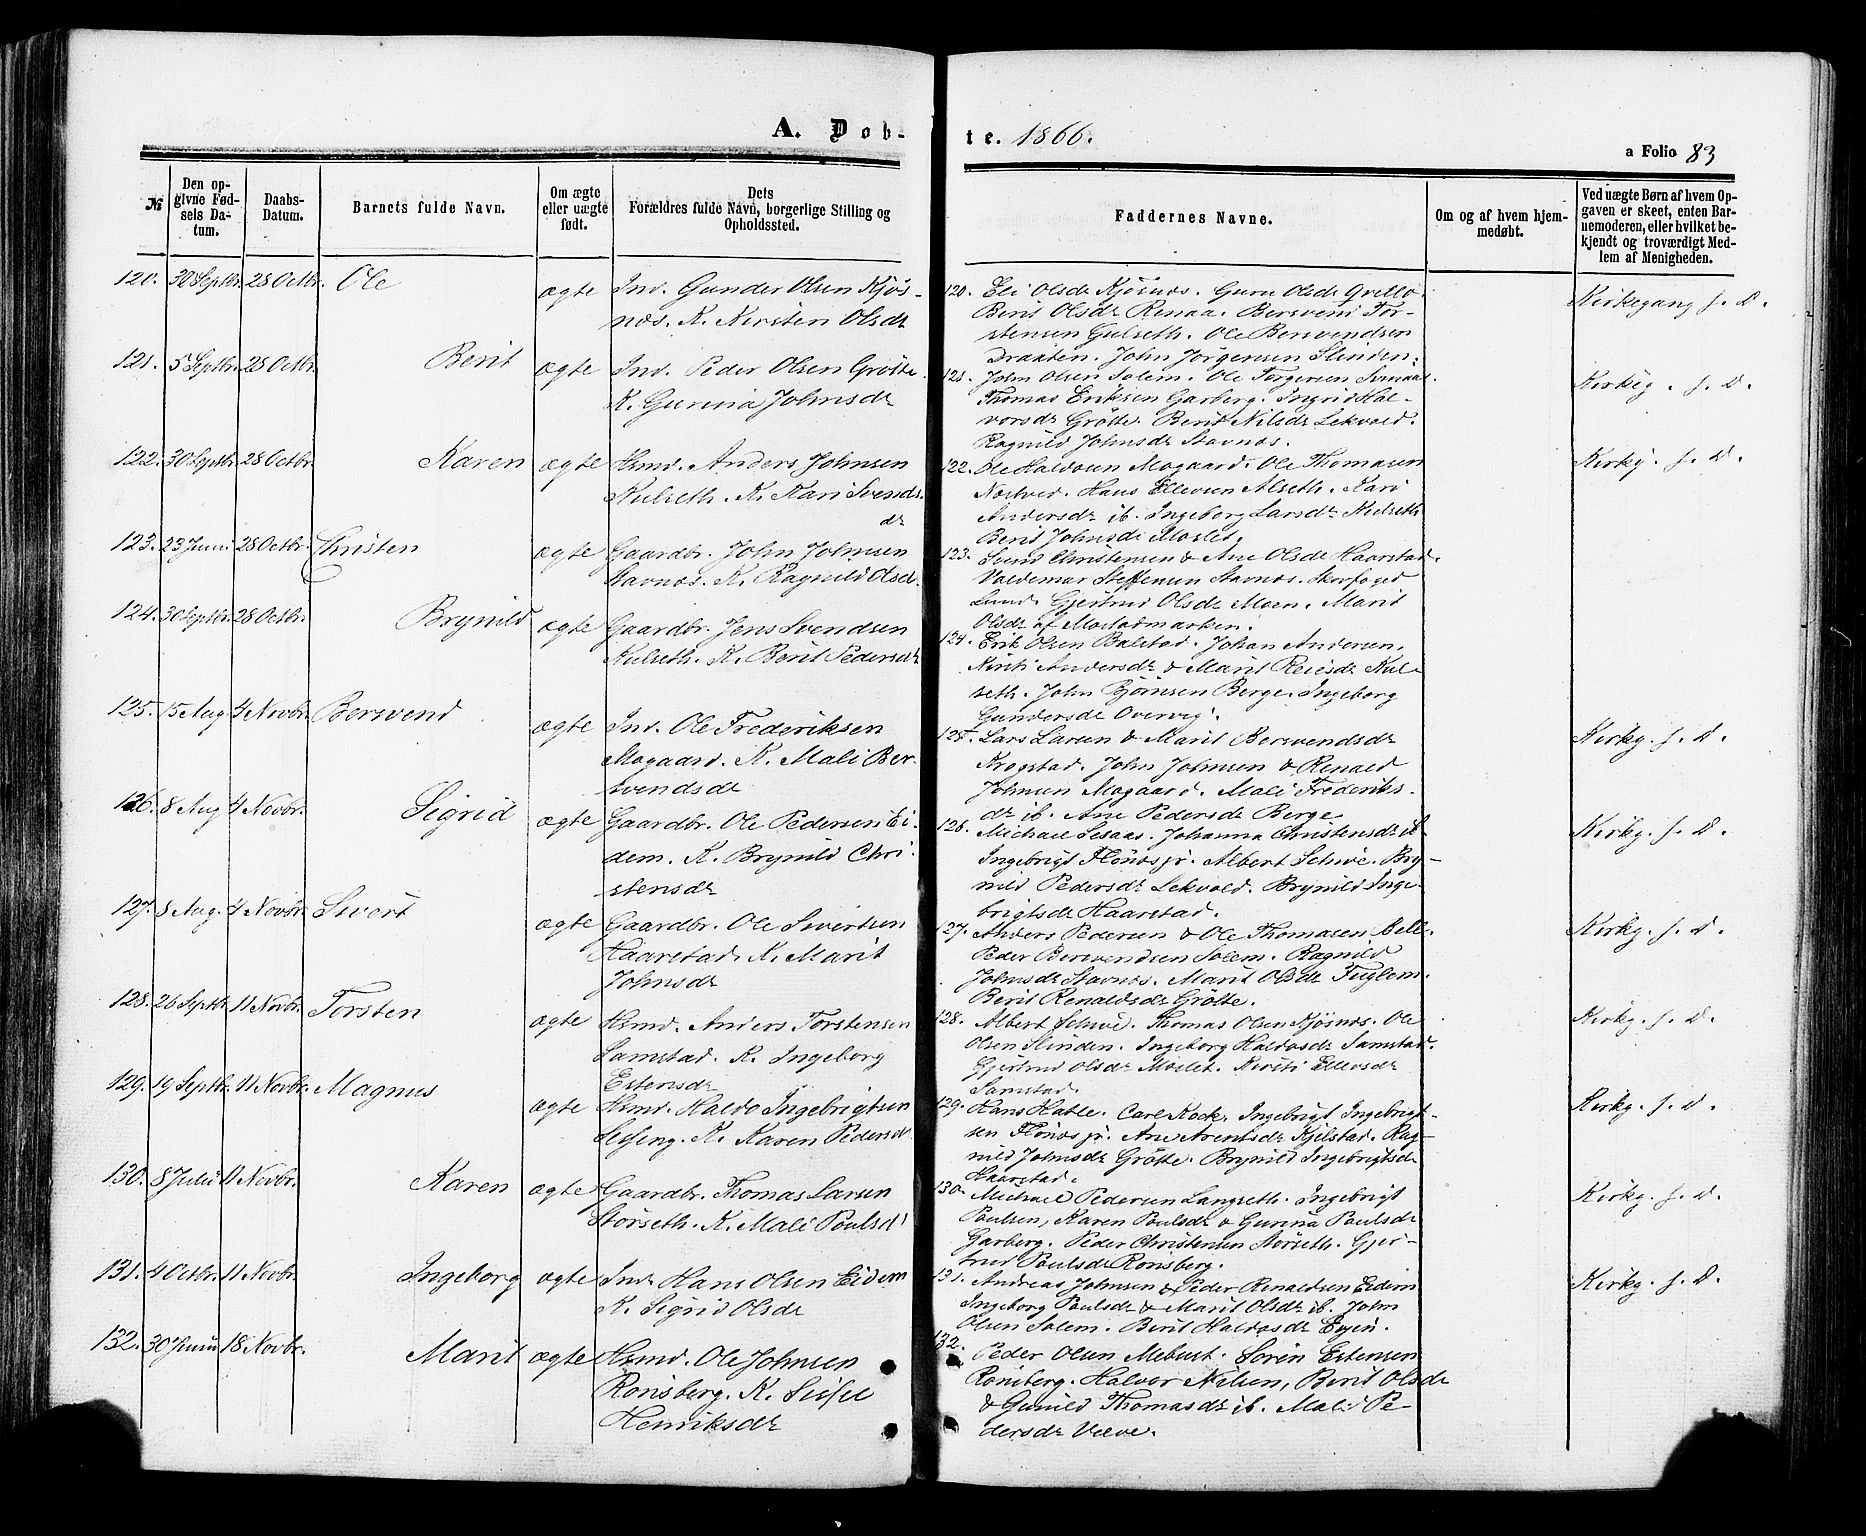 A. Døb-
te. 1866.
a Folio 83
№
Den op-
givne Fød-
sels Da-
tum.
Daabs-
Datum.
Barnets fulde Navn.
Om ægte
eller uægte
født.
Dets
Forældres fulde Navn, borgerlige Stilling og
Opholdssted.
Faddernes Navne.
Om og af hvem hjem-
medøbt.
Ved uægte Børn af hvem Op-
gaven er skeet, enten Bar-
nemoderen, eller hvilket be-
kjendt og troværdigt Med-
lem af Menigheden.
120. 30 Septbr. 28 Octbr. Ole ægte Ind. Gunder Olsen Kjøs-
næs. K. Kirsten Olsdr
120. Eli Olsdr Kjøsnæs. Guru Olsdr Grellø.
Berit Olsdr Renaa. Bersvend Tor-
stensen Gulseth. Ole Bersvendsen
Draxten. John Jørgensen Slinden.
Kirkegang f. D.
121. 5 Septbr. 28 Octbr. Berit ægte Ind. Peder Olsen Grøtte.
K. Gurina Johnsdr
121. John Olsen Solem. Ole Torgersen
Thomas Eriksen Garberg. Ingrid Hal-
vorsdr Grøtte. Berit Nilsdr Lekvold.
Ragnild Johnsdr Stavnæs.
Kirkeg. f. D.
122. 30 Septbr. 28 Octbr. Karen ægte Hsmd. Anders Johnsen
Kulseth. K. Kari Svends-
dr
122. Ole Haldosen Mogaard. Ole Thomasen
Nostved. Hans Ellevsen Alseth. Kari
Andersdr ib. Ingeborg Larsdr Kulseth
Berit Johnsdr Moslet.
Kirkg. f. D.
123. 23 Juni 28 Octbr. Christen ægte Gaardbr. John Johnsen
Stavnæs. K. Ragnild Olsd.
123. Svend Christensen & Ane Olsdr Haarstad.
Valdemar Steffensen Stavnæs. Skovfoged
Lund. Gjertrud Olsdr Moen. Marit
Olsdr af Mostadmarken.
124. 30 Septbr. 28 Octbr. Brynild ægte Gaardbr. Jens Svendsen
Kulseth. K. Berit Pedersdr
124. Erik Olsen Balstad. Johan Andersen,
Kirsti Andersdr & Marit Reiersdr Kul-
seth. John Bjørnsen Berge. Ingeborg
Gundersdr Overvig.
125. 15 Aug. 4 Novbr. Bersvend ægte Ind. Ole Frederiksen
Mogaard. K. Mali Ber-
svendsdr
125. Lars Larsen & Marit Bersvendsdr
Krogstad. John Johnsen & Renald
Johnsen Mogaard. Mali Frederiks-
dr ib. Ane Pedersdr Berge.
Kirkg. f. D.
126. 8 Aug 4 Novbr. Sigrid ægte Gaardbr. Ole Pedersen Ei-
dem. K. Brynild Chri-
stensdr
126. Michael Sesaas. Johanna Christensdr ib.
Ingebrigt Flønæs jr. Albert Schive. Bry-
nild Pedersdr Lekvold. Brynild Inge-
brigtsdr Haarstad.
Kirkg. f. D.
127. 8 Aug. 4 Novbr. Sivert ægte Gaardbr. Ole Sivertsen
Haarstad. K. Marit
Johnsdr
127. Anders Pedersen & Ole Thomasen Bell.
Peder Bersvendsen Solem. Ragnild
Johnsdr Stavnæs. Marit Olsdr Fuglem.
Berit Renaldsdr Grøtte.
Kirkg. f. D.
128. 26 Septbr. 11 Novbr. Torsten ægte Hsmd. Anders Torstensen
Samstad. K. Ingeborg
Estensdr
128. Albert Schive. Thomas Olsen Kjøsnæs. Ole
Olsen Slinden. Ingeborg Haldosdr Samstad.
Gjertrud Olsdr Moslet. Kirsti Ellevsdr
Samstad.
Kirkg. f. D.
129. 19 Septbr. 11 Novbr. Magnus ægte Hsmd. Haldo Ingebrigtsen
Sessing. K. Karen Pedersdr
129. Hans Hatle. Carl Kock. Ingebrigt Ingebrigt-
sen Flønæs jr. Ane Arentsdr Kjelstad. Rag-
nild Johnsdr Grøtte. Brynild Ingebrigtsdr
Haarstad.
Kirkg. f. D.
130. 8 Juli 11 Novbr. Karen ægte Gaardbr. Thomas Larsen
Størseth. K. Mali Poulsd.
130. Michael Pedersen Langseth. Ingebrigt
Poulsen, Karen Poulsdr & Gurina Poulsdr
Garberg. Peder Christensen Størseth. Gjer-
trud Poulsdr Rønsberg.
Kirkg. f. D.
131. 4 Octbr. 11 Novbr. Ingeborg ægte Ind. Hans Olsen Eidem
K. Sigrid Olsdr
131. Andreas Johnsen & Peder Renaldsen Eidem
Ingeborg Paulsdr & Marit Olsdr ib. John
Olsen Solem. Berit Haldosdr Evjen.
Kirkg. f. D.
132. 30 Juni 18 Novbr. Marit ægte Hsmd. Ole Johnsen
Rønsberg. K. Sissel
Henriksdr
132. Peder Olsen Mebust. Søren Estensen
Rønsberg. Halvor Nilsen, Berit Olsdr
& Gunild Thomasdr ib. Mali Pe-
dersdr Væve.